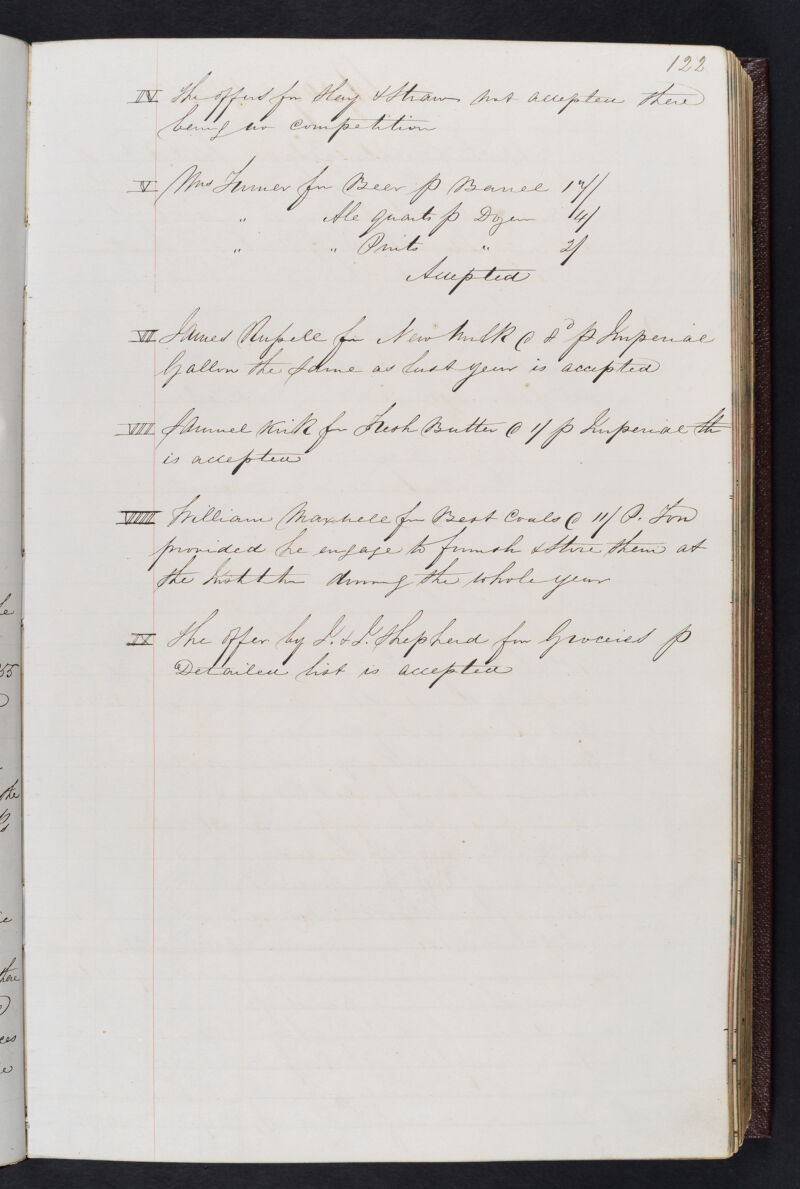 122
IV The offers for Hay & Straw not accepted there
being no competition
V Mrs Turner for Beer p Barrel 17/
" Ale quarts p Dozen 4/
" " Pints " 2/
Accepted
VI James Russell for New Milk @ 8d p Imperial
Gallon the same as last year is accepted
VII Samuel Kirk for Fresh Butter @ 1/ p Imperial lb
is accepted
VIII William Maxwell for Best Coals @ 11/ P. Ton
provided he engage to furnish & store them at
the Institution during the whole year
IX The offer by J. & J. Shepherd for Groceries p
Detailed list is accepted